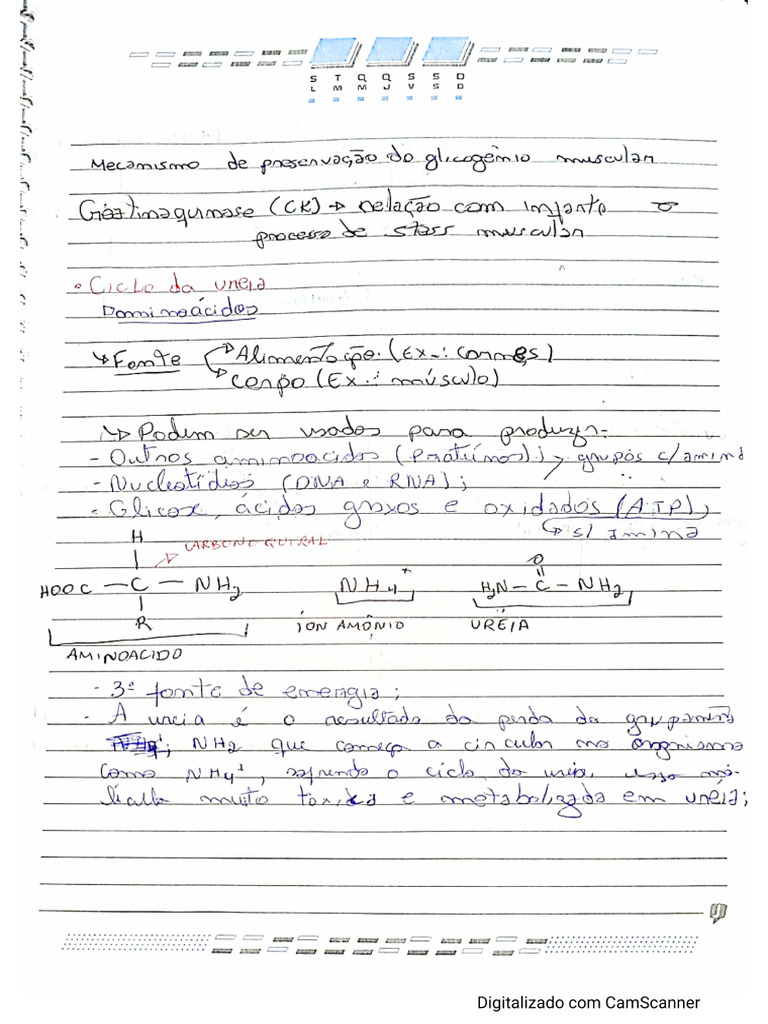 S T Q Q S S D
L M M J V S D
Mecanismo de preservação do glicogênio muscular
(CK) → relação com infarto
processo de stress muscular
• Ciclo da ureia
aminoácidos
↳ Fonte → Alimentação. (Ex.: carnes)
→ corpo (Ex.: músculo)
↳ Podem ser usados para produzir:
- Outros aminoacidos (proteínas); → grupos c/ amina
- Nucleotídeos (DNA e RNA);
- Glicose, ácidos graxos e oxidados (ATP);
↳ s/ amina
H
CARBONO QUIRAL
HOOC — C — NH2
R
AMINOACIDO
NH4+
ÍON AMÔNIO
O
H2N — C — NH2
UREIA
- 3ª fonte de energia;
- A ureia é o resultado da perda do grupamento
NH2 que começa a circular no organismo
como NH4+, sofrendo o ciclo da ureia, essa mo-
lécula muito tóxica e metabolizada em ureia;
Digitalizado com CamScanner